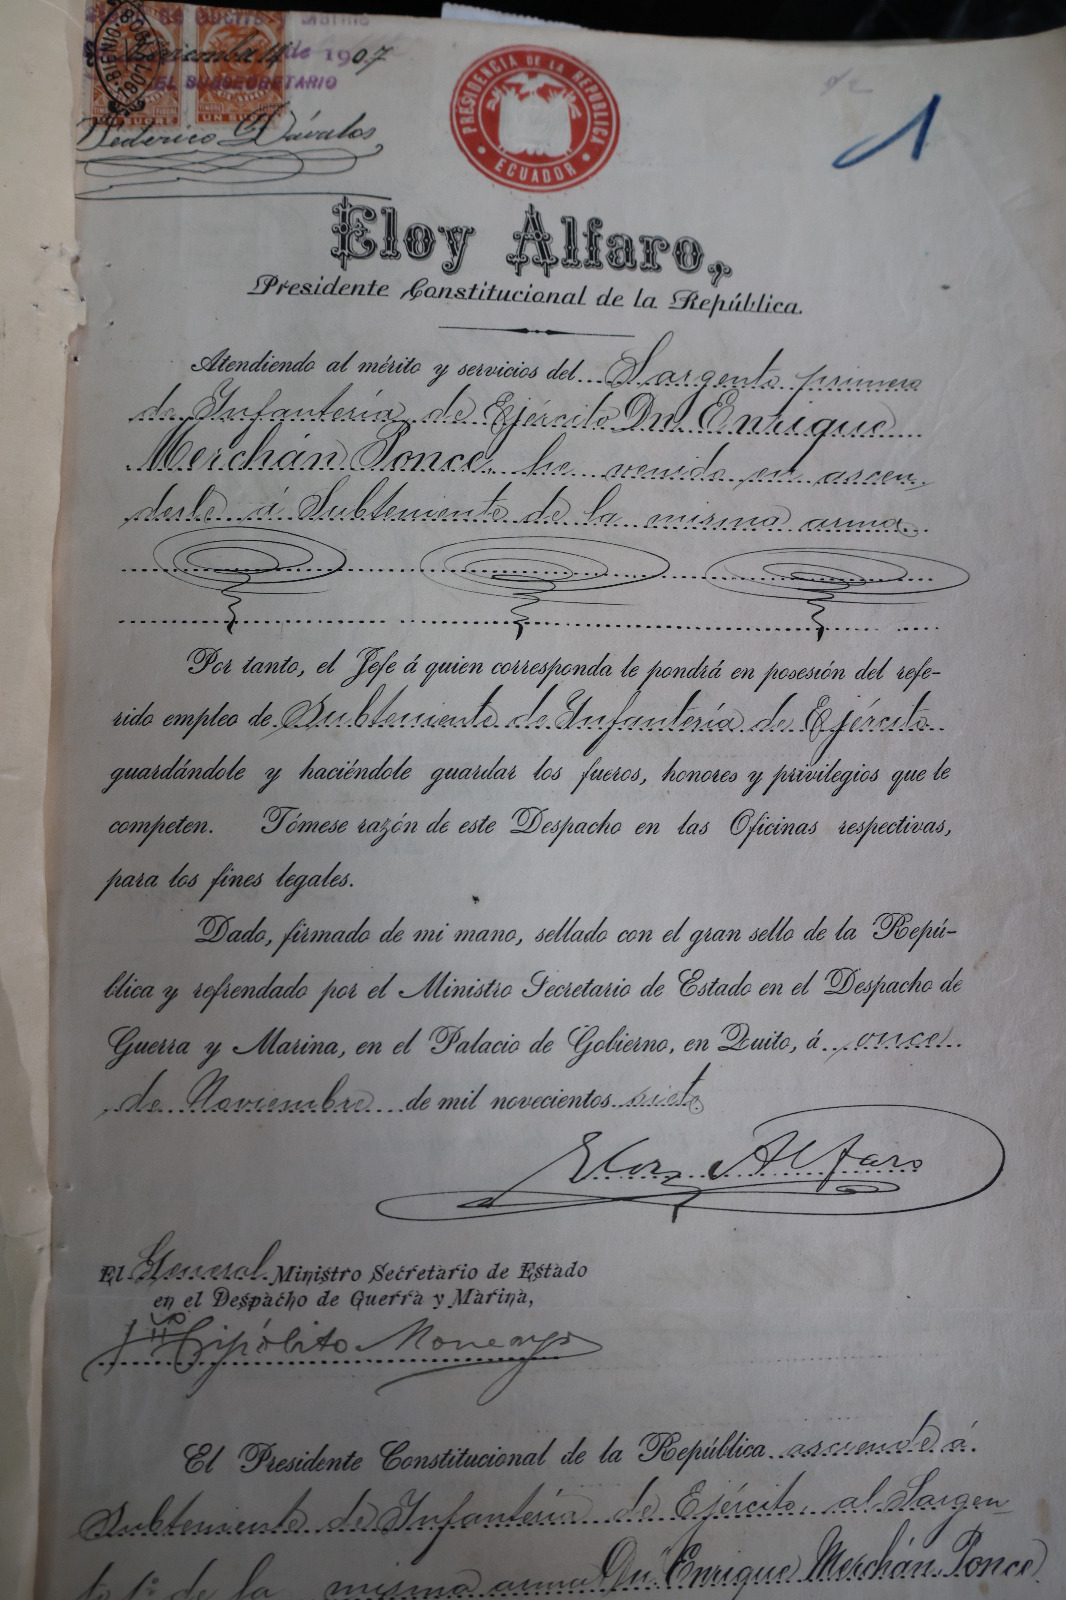 Noviembre 14 de 1907
EL SUBSECRETARIO
UN SUCRE
UN SUCRE
Federico Dávalos
PRESIDENCIA DE LA REPUBLICA
ECUADOR
1
Eloy Alfaro,
Presidente Constitucional de la República.
Atendiendo al mérito y servicios del Sargento primero
de Infantería de Ejército Dn. Enrique
Merchán Ponce, ha venido en ascen-
derle á Subteniente de la misma arma.
Por tanto, el Jefe á quien corresponda le pondrá en posesión del refe-
rido empleo de Subteniente de Infantería de Ejército
guardándole y haciéndole guardar los fueros, honores y privilegios que le
competen. Tómese razón de este Despacho en las Oficinas respectivas,
para los fines legales.
Dado, firmado de mi mano, sellado con el gran sello de la Repú-
blica y refrendado por el Ministro Secretario de Estado en el Despacho de
Guerra y Marina, en el Palacio de Gobierno, en Quito, á once
de Noviembre de mil novecientos siete
Eloy Alfaro
El General Ministro Secretario de Estado
en el Despacho de Guerra y Marina,
Hipólito Moncayo
El Presidente Constitucional de la República asciende á
Subteniente de Infantería de Ejército, al Sargen-
to 1º de la misma arma Dn. Enrique Merchán Ponce